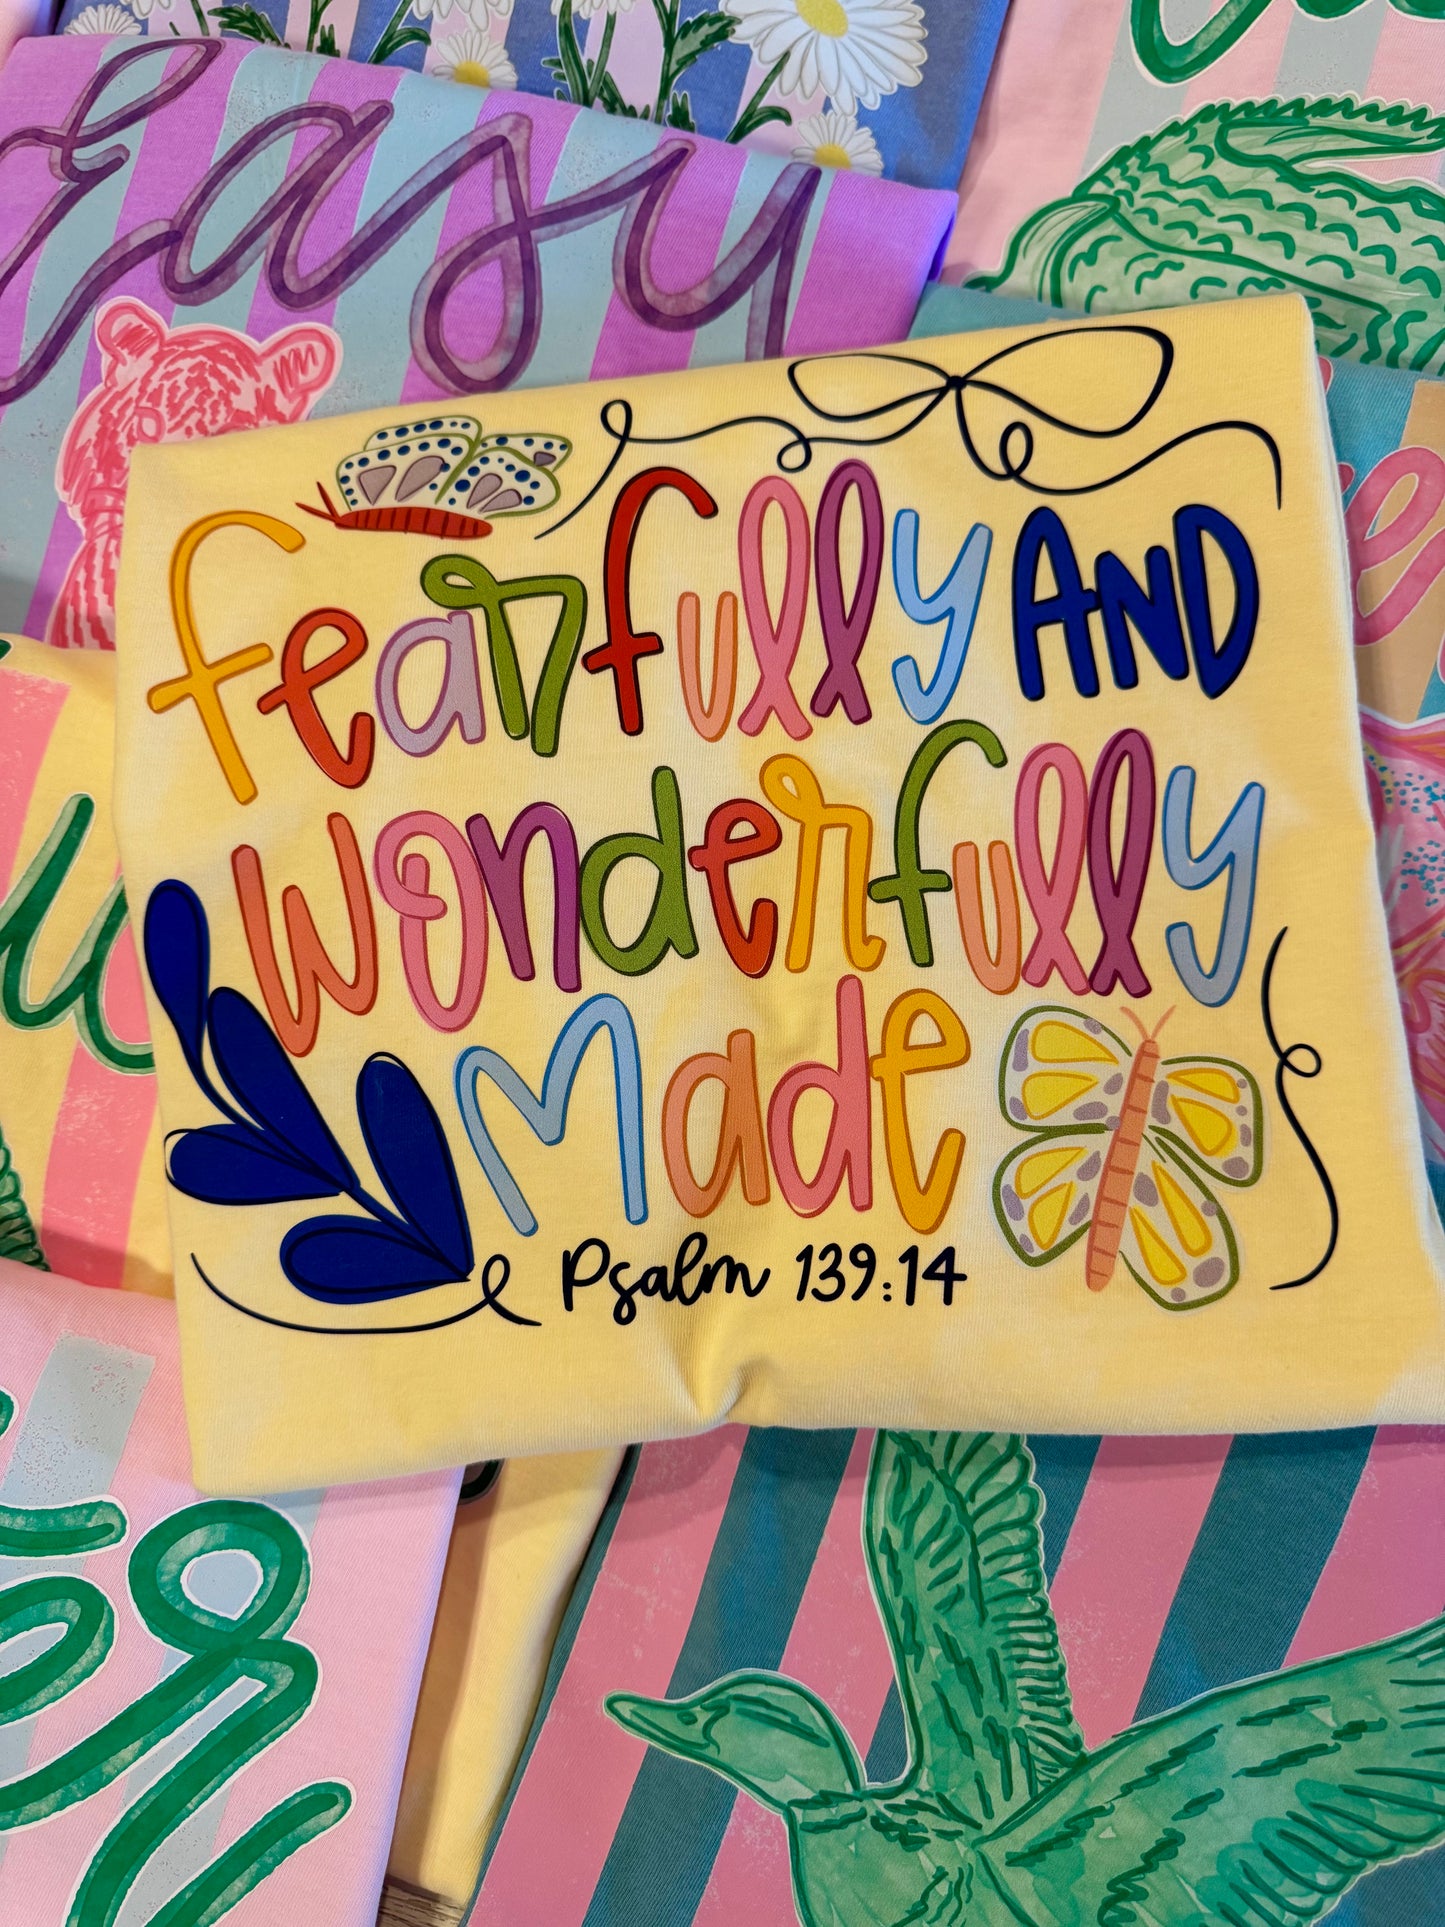 Easy
fearfully AND
wonderfully
made
Psalm 139:14